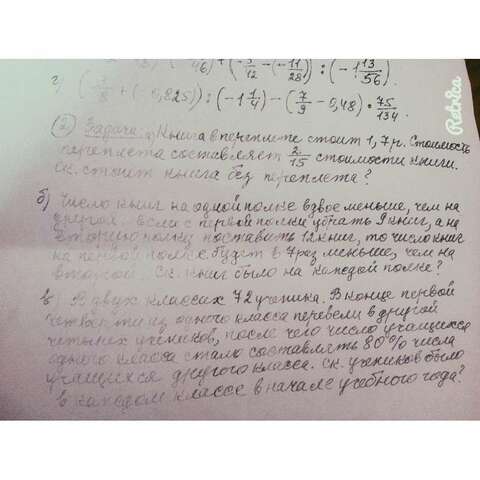 46) + (-5/12 - (-11/28)) : (-1 13/56).
г) (3/8 + (-0,825)) : (-1 1/4) - (7/9 - 0,48) • 75/134
② Задачи: а) Книга в переплете стоит 1,7 р. Стоимость
переплета составляет 2/15 стоимости книги.
Ск. стоит книга без переплета?
б) Число книг на одной полке вдвое меньше, чем на
другой. Если с первой полки убрать 9 книг, а на
вторую полку поставить 12 книг, то число книг
на первой полке будет в 7 раз меньше, чем на
второй. Ск. книг было на каждой полке?
в) В двух классах 72 ученика. В конце первой
четверти из одного класса перевели в другой
четырёх учеников, после чего число учащихся
одного класса стало составлять 80% числа
учащихся другого класса. Ск. учеников было
в каждом классе в начале учебного года?
Retrica